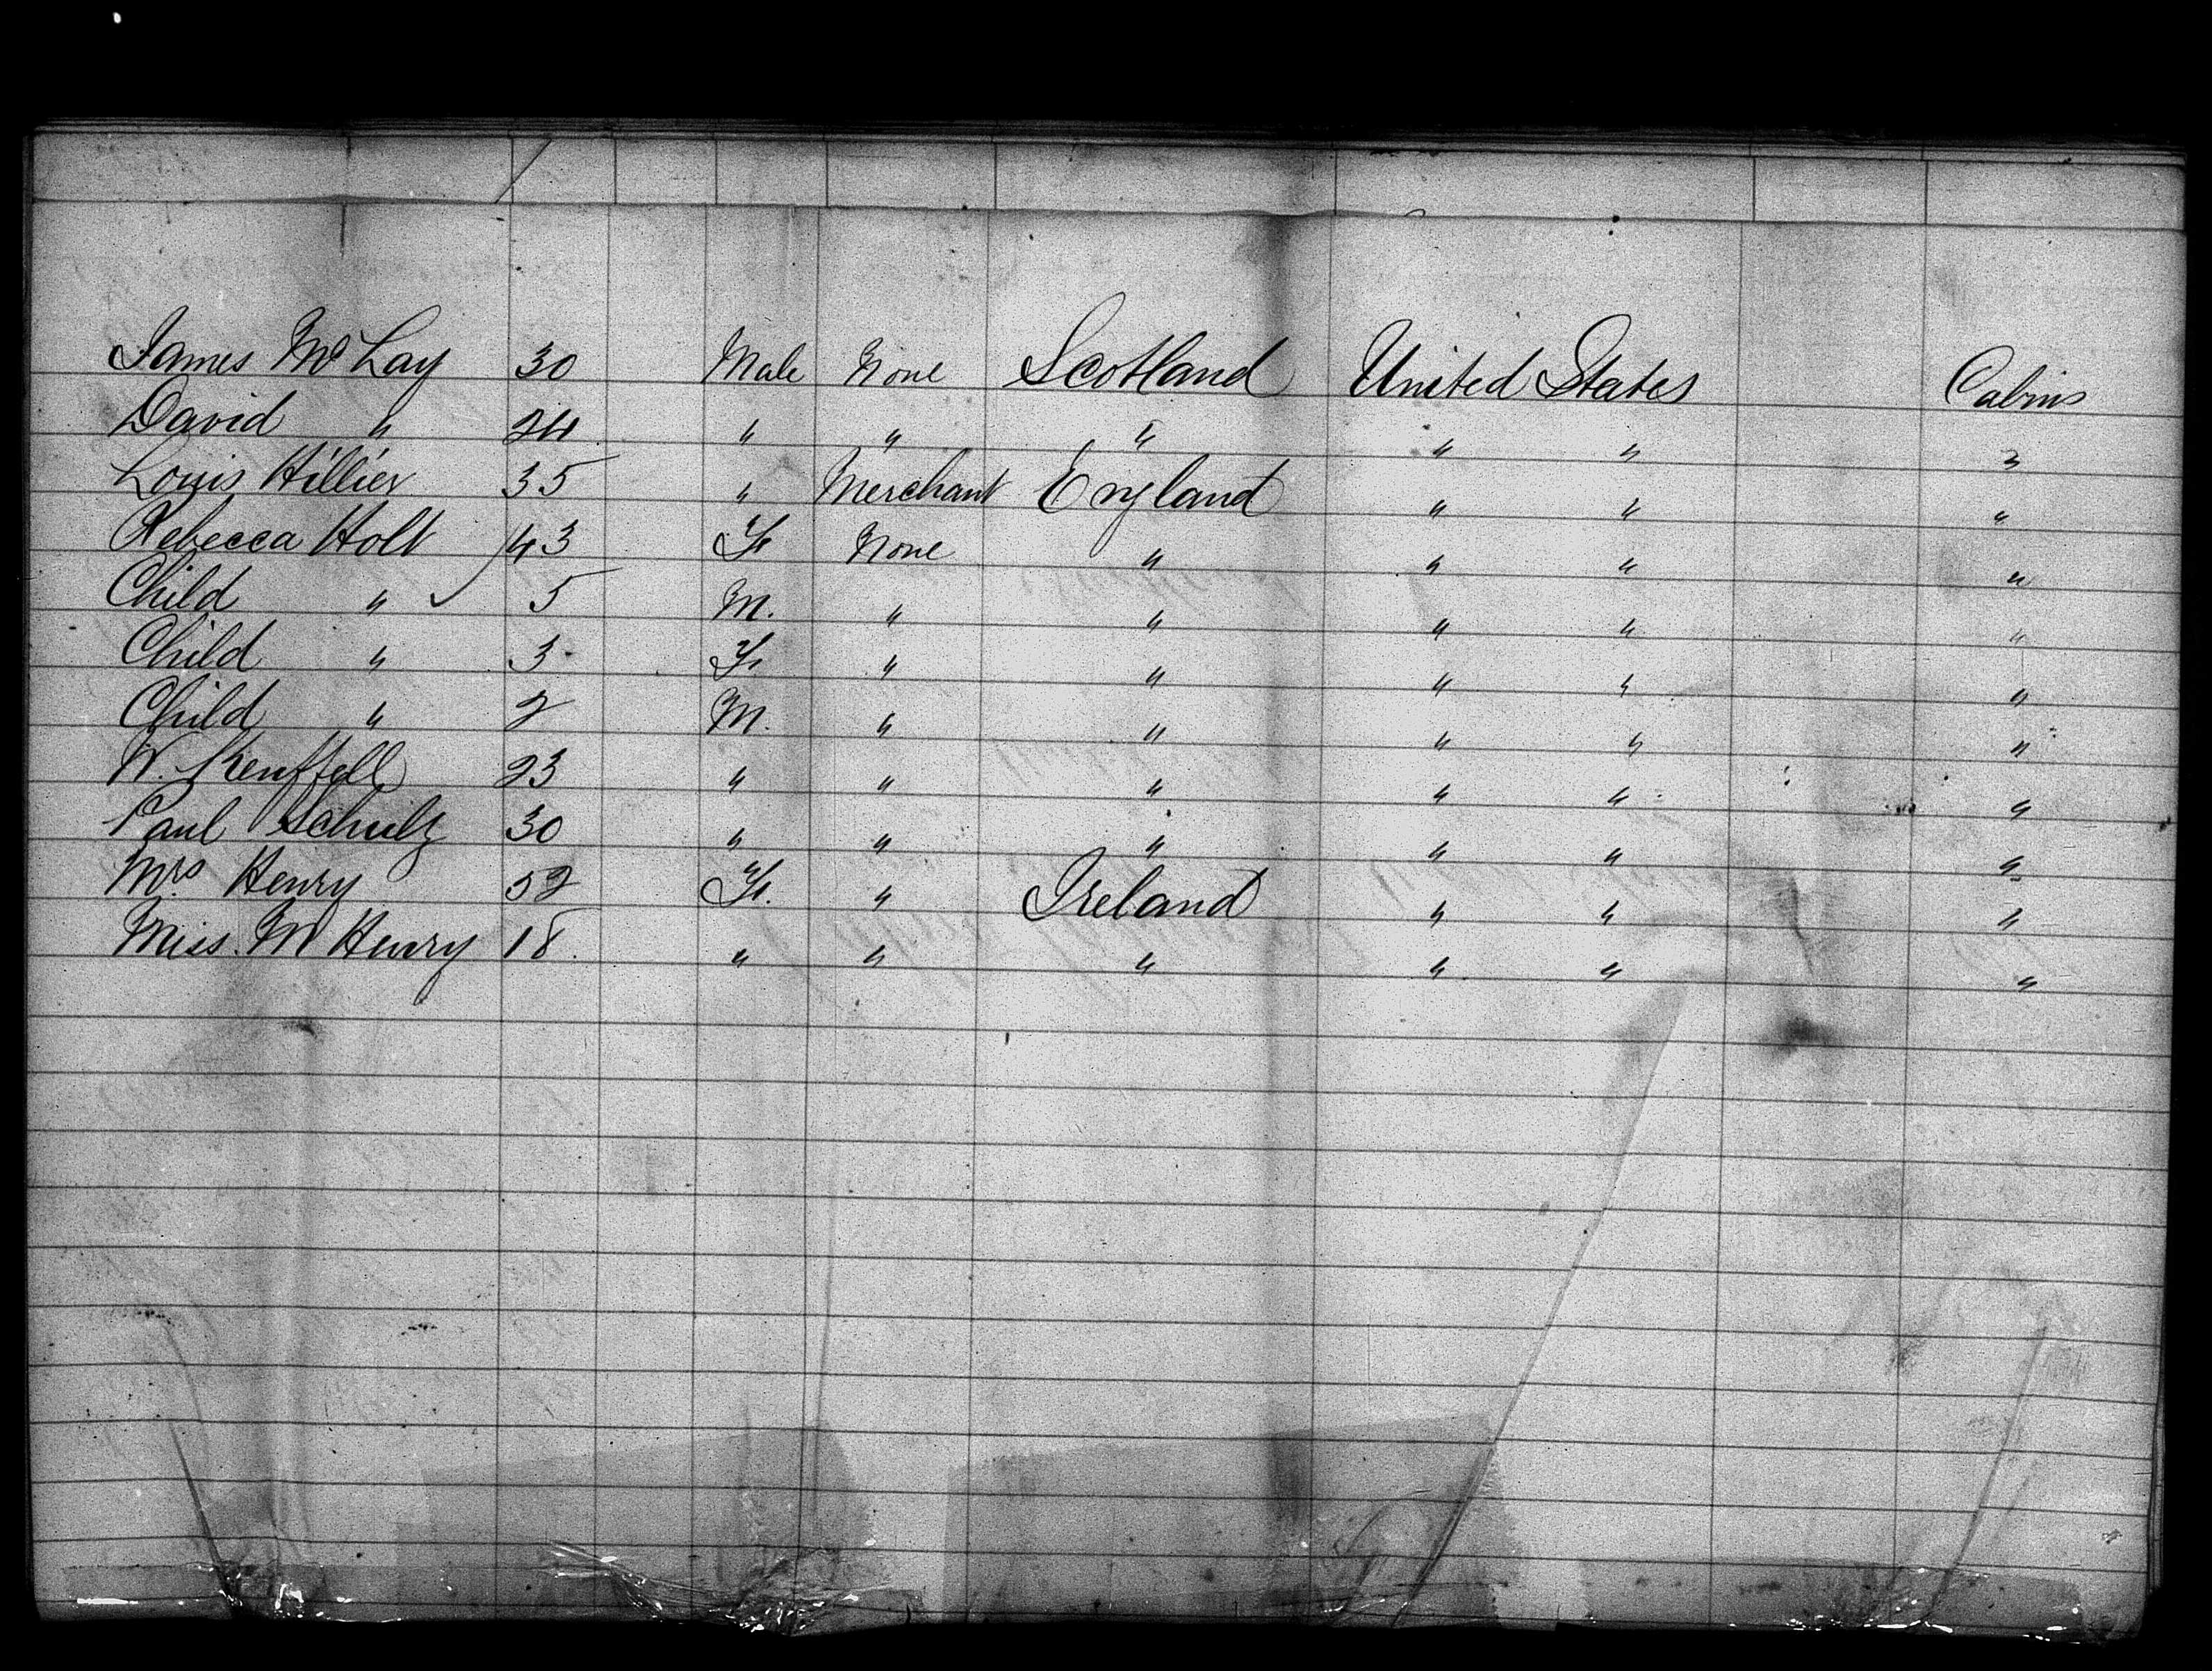 James Mc Lay 30 Male None Scotland United States Cabin
David " 24 " " " " " "
Louis Hillier 35 " Merchant England " " "
Rebecca Holt 43 F. None " " " "
Child " 5 M. " " " " "
Child " 3 F. " " " " "
Child " 2 M. " " " " "
W. 23 " " " " " "
Paul Schulz 30 " " " " " "
Mrs Henry 52 F. " Ireland " " "
Miss. M Henry 18. " " " " " "